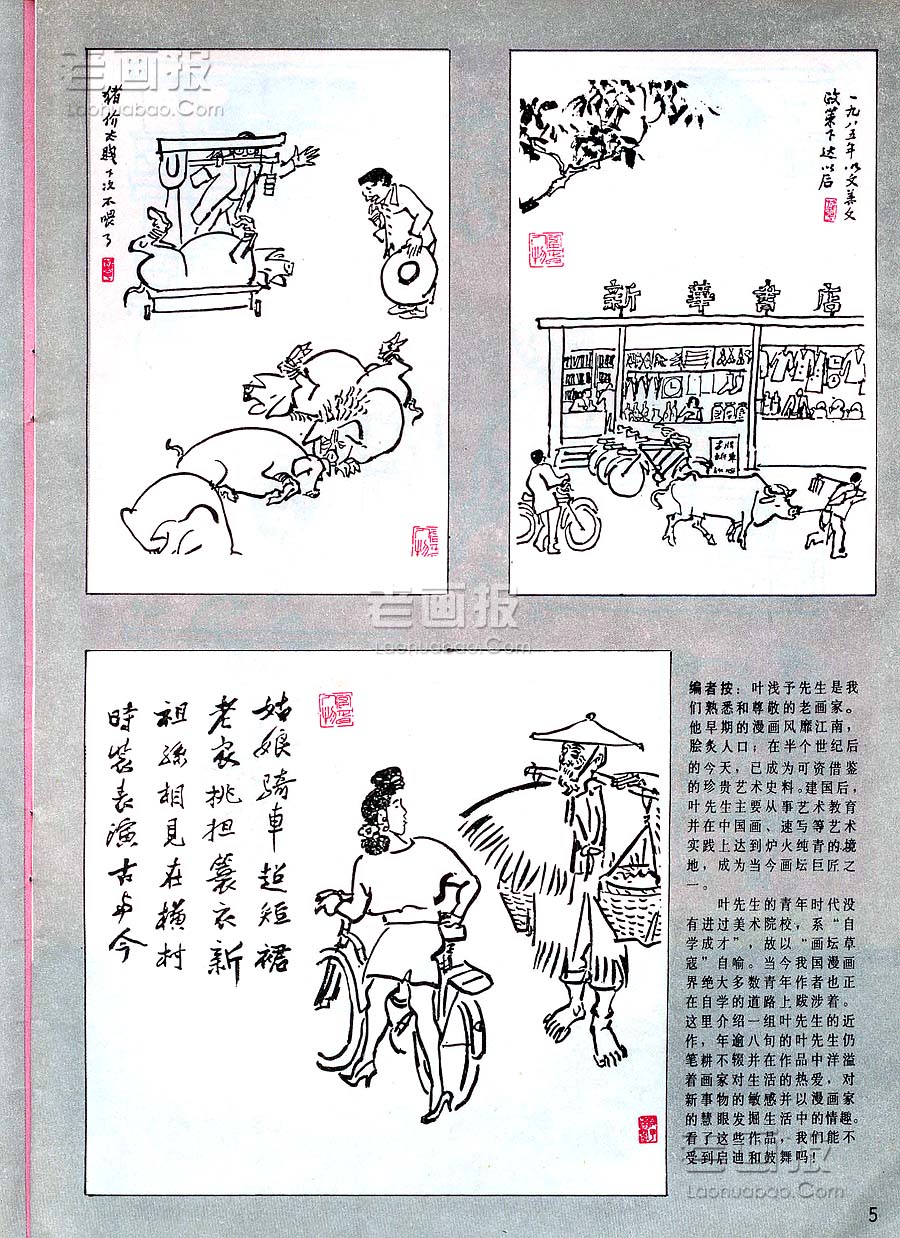 老画报
Laohuabao.Com
猪价太贱下次不喂了
一九八五年以文养文
政策下达以后
新華書店
老画报
Laohuabao.Com
姑娘骑車超短裙
老农挑担蓑衣新
祖孫相見在横村
時装表演古与今
编者按：叶浅予先生是我
们熟悉和尊敬的老画家。
他早期的漫画风靡江南，
脍炙人口；在半个世纪后
的今天，已成为可资借鉴
的珍贵艺术史料。建国后，
叶先生主要从事艺术教育
并在中国画、速写等艺术
实践上达到炉火纯青的境
地，成为当今画坛巨匠之
一。
叶先生的青年时代没
有进过美术院校，系“自
学成才”，故以“画坛草
寇”自喻。当今我国漫画
界绝大多数青年作者也正
在自学的道路上跋涉着。
这里介绍一组叶先生的近
作，年逾八旬的叶先生仍
笔耕不辍并在作品中洋溢
着画家对生活的热爱，对
新事物的敏感并以漫画家
的慧眼发掘生活中的情趣。
看了这些作品，我们能不
受到启迪和鼓舞吗！
老画报
Laohuabao.Com
5